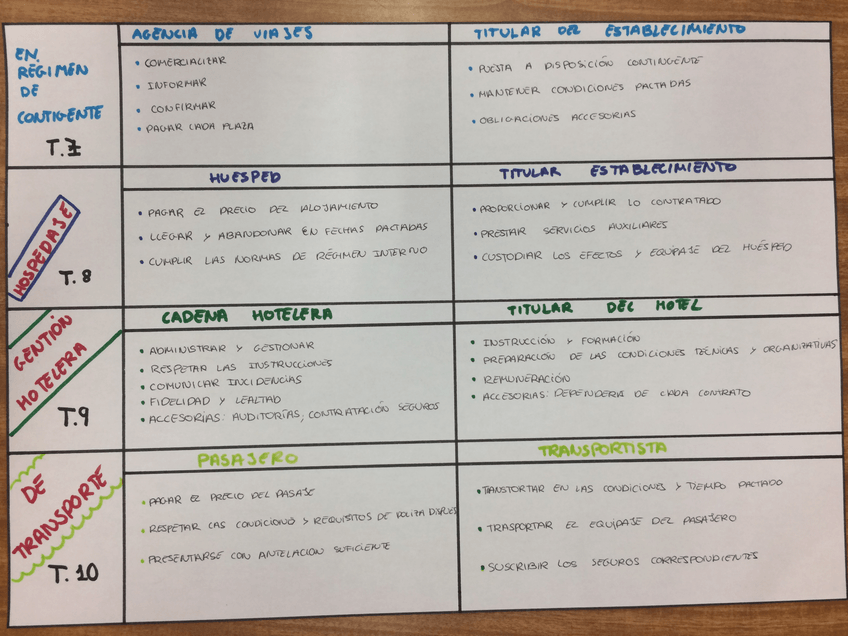 EN
RÉGIMEN
DE
CONTIGENTE
T.7
AGENCIA DE VIAJES
• COMERCIALIZAR
• INFORMAR
• CONFIRMAR
• PAGAR CADA PLAZA
TITULAR DEL ESTABLECIMIENTO
• PUESTA A DISPOSICIÓN CONTINGENTE
• MANTENER CONDICIONES PACTADAS
• OBLIGACIONES ACCESORIAS
HOSPEDAJE
T.8
HUESPED
• PAGAR EL PRECIO DEL ALOJAMIENTO
• LLEGAR Y ABANDONAR EN FECHAS PACTADAS
• CUMPLIR LAS NORMAS DE RÉGIMEN INTERNO
TITULAR ESTABLECIMIENTO
• PROPORCIONAR Y CUMPLIR LO CONTRATADO
• PRESTAR SERVICIOS AUXILIARES
• CUSTODIAR LOS EFECTOS Y EQUIPAJE DEL HUÉSPED
GENTIÓN
HOTELERA
T.9
CADENA HOTELERA
• ADMINISTRAR Y GESTIONAR
• RESPETAR LAS INSTRUCCIONES
• COMUNICAR INCIDENCIAS
• FIDELIDAD Y LEALTAD
• ACCESORIAS: AUDITORÍAS, CONTRATACIÓN SEGUROS
TITULAR DEL HOTEL
• INSTRUCCIÓN Y FORMACIÓN
• PREPARACIÓN DE LAS CONDICIONES TÉCNICAS Y ORGANIZATIVAS
• REMUNERACIÓN
• ACCESORIAS: DEPENDERÁ DE CADA CONTRATO
DE
TRANSPORTE
T.10
PASAJERO
• PAGAR EL PRECIO DEL PASAJE
• RESPETAR LAS CONDICIONO Y REQUISITOS DE POLIZA
• PRESENTARSE CON ANTELACION SUFICIENTE
TRANSPORTISTA
• TANSTORTAR EN LAS CONDICIONES Y TIEMPO PACTADO
• TRASPORTAR EL EQUIPAJE DEL PASAJERO
• SUSCRIBIR LOS SEGUROS CORRESPONDIENTES